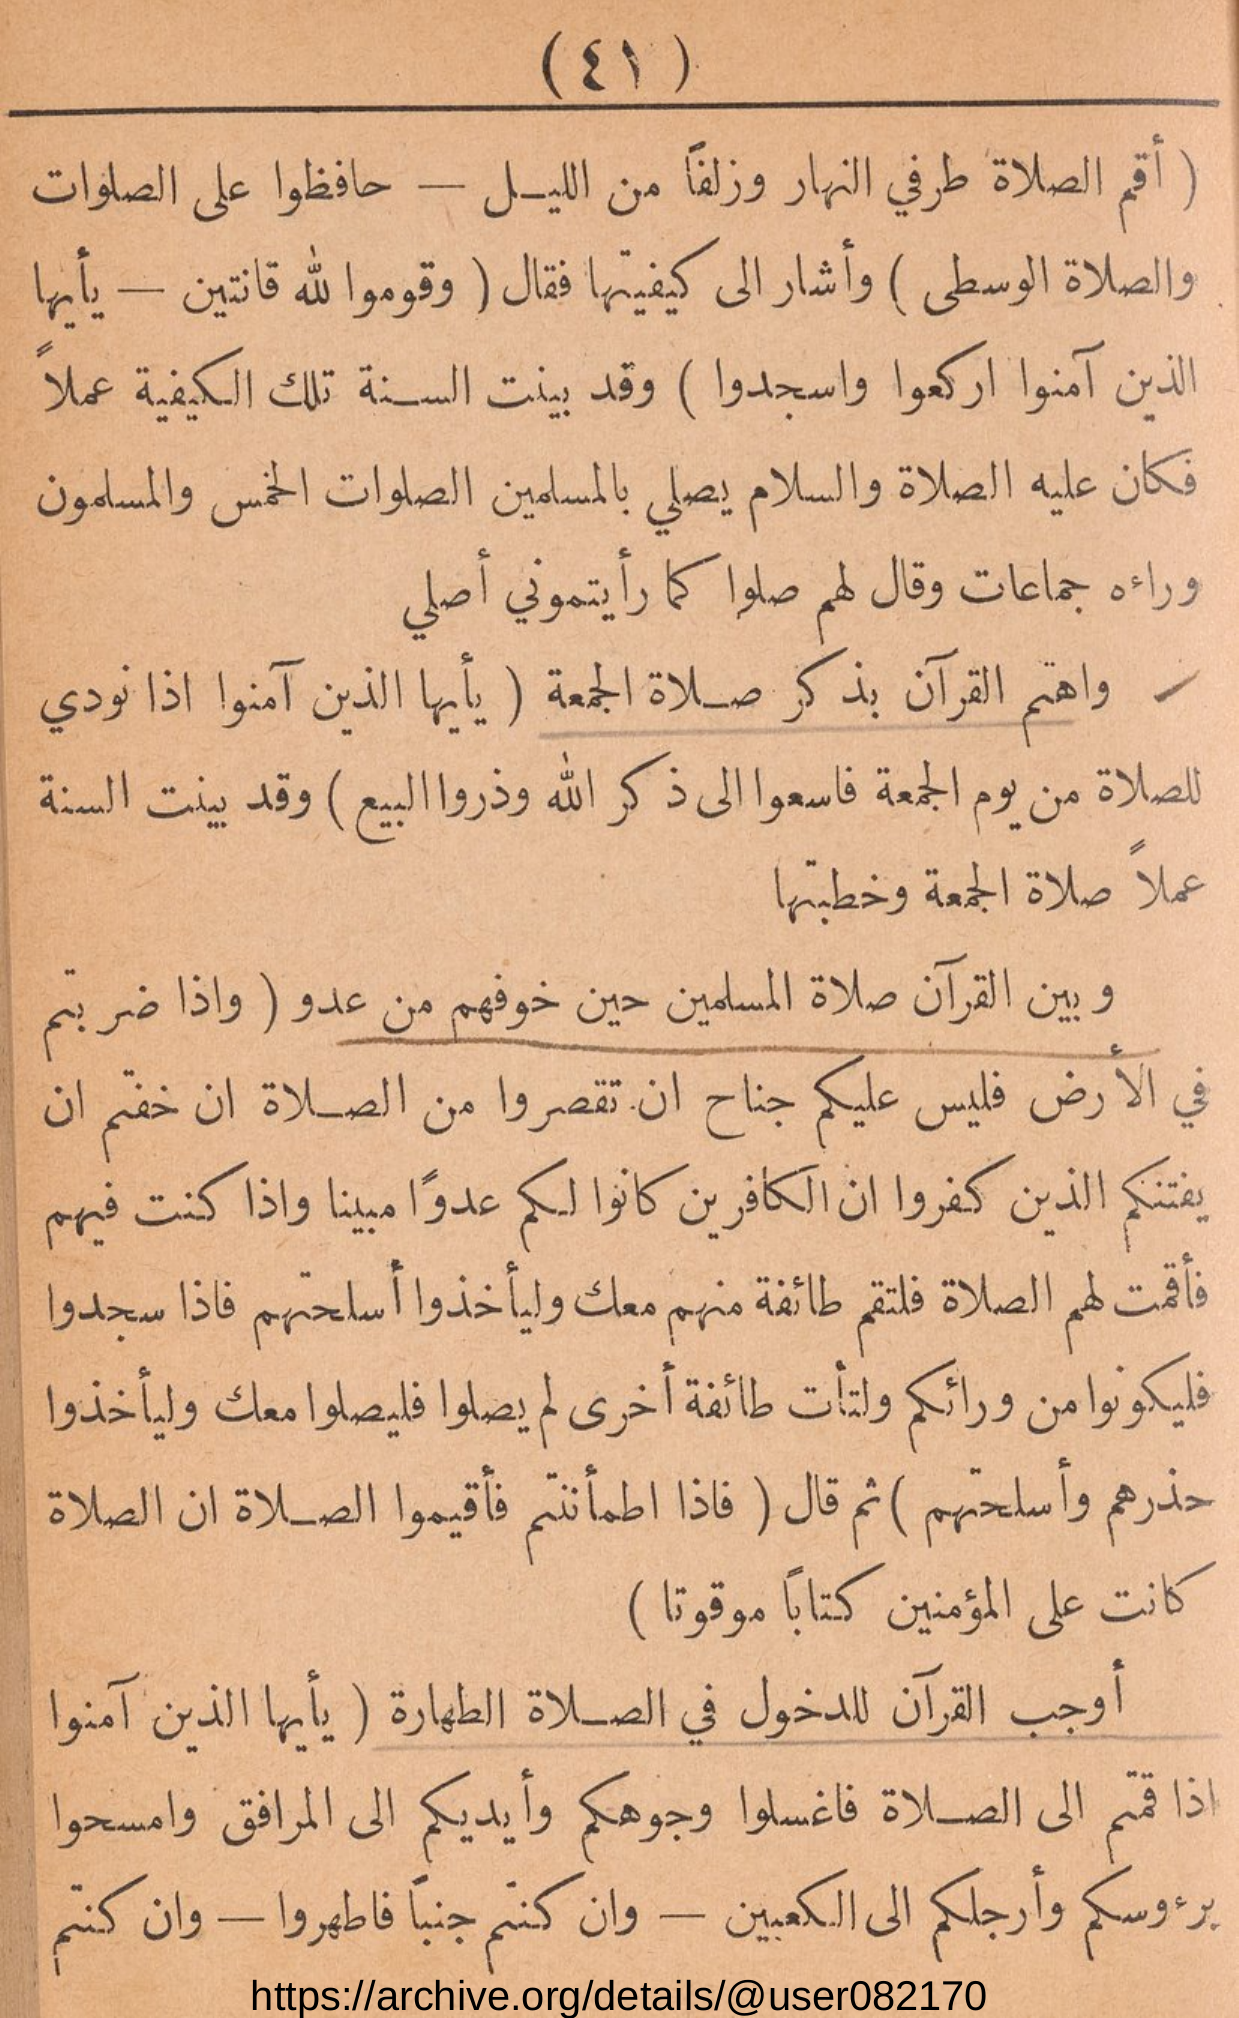 ( ٤١ )
( أقم الصلاة طرفي النهار وزلفاً من الليـل — حافظوا على الصلوات
والصلاة الوسطى ) وأشار الى كيفيتها فقال ( وقوموا لله قانتين — يأيها
الذين آمنوا اركعوا واسجدوا ) وقد بينت السـنة تلك الكيفية عملاً
فكان عليه الصلاة والسلام يصلي بالمسلمين الصلوات الخمس والمسلمون
وراءه جماعات وقال لهم صلوا كما رأيتموني أصلي
واهتم القرآن بذكر صـلاة الجمعة ( يأيها الذين آمنوا اذا نودي
للصلاة من يوم الجمعة فاسعوا الى ذكر الله وذروا البيع ) وقد بينت السنة
عملاً صلاة الجمعة وخطبتها
وبين القرآن صلاة المسلمين حين خوفهم من عدو ( واذا ضربتم
في الأرض فليس عليكم جناح ان تقصروا من الصـلاة ان خفتم ان
يفتنكم الذين كفروا ان الكافرين كانوا لكم عدوًا مبينا واذا كنت فيهم
فأقمت لهم الصلاة فلتقم طائفة منهم معك وليأخذوا أسلحتهم فاذا سجدوا
فليكونوا من ورائكم ولتأت طائفة أخرى لم يصلوا فليصلوا معك وليأخذوا
حذرهم وأسلحتهم ) ثم قال ( فاذا اطمأننتم فأقيموا الصـلاة ان الصلاة
كانت على المؤمنين كتاباً موقوتا )
أوجب القرآن للدخول في الصـلاة الطهارة ( يأيها الذين آمنوا
اذا قمتم الى الصـلاة فاغسلوا وجوهكم وأيديكم الى المرافق وامسحوا
برءوسكم وأرجلكم الى الكعبين — وان كنتم جنباً فاطهروا — وان كنتم
https://archive.org/details/@user082170